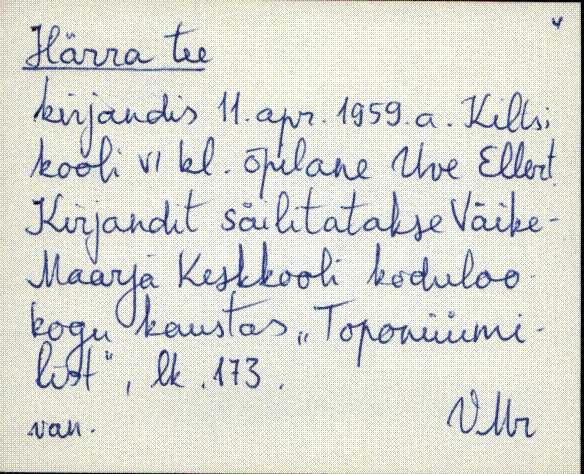 4
Härra tee
kirjandis 11. apr. 1959. a. Kiltsi
kooli VI kl. õpilane Uve Ellert.
Kirjandit säilitatakse Väike-
Maarja Keskkooli koduloo-
kogu kaustas „Toponüümi-
list", lk. 173.
van. VMr